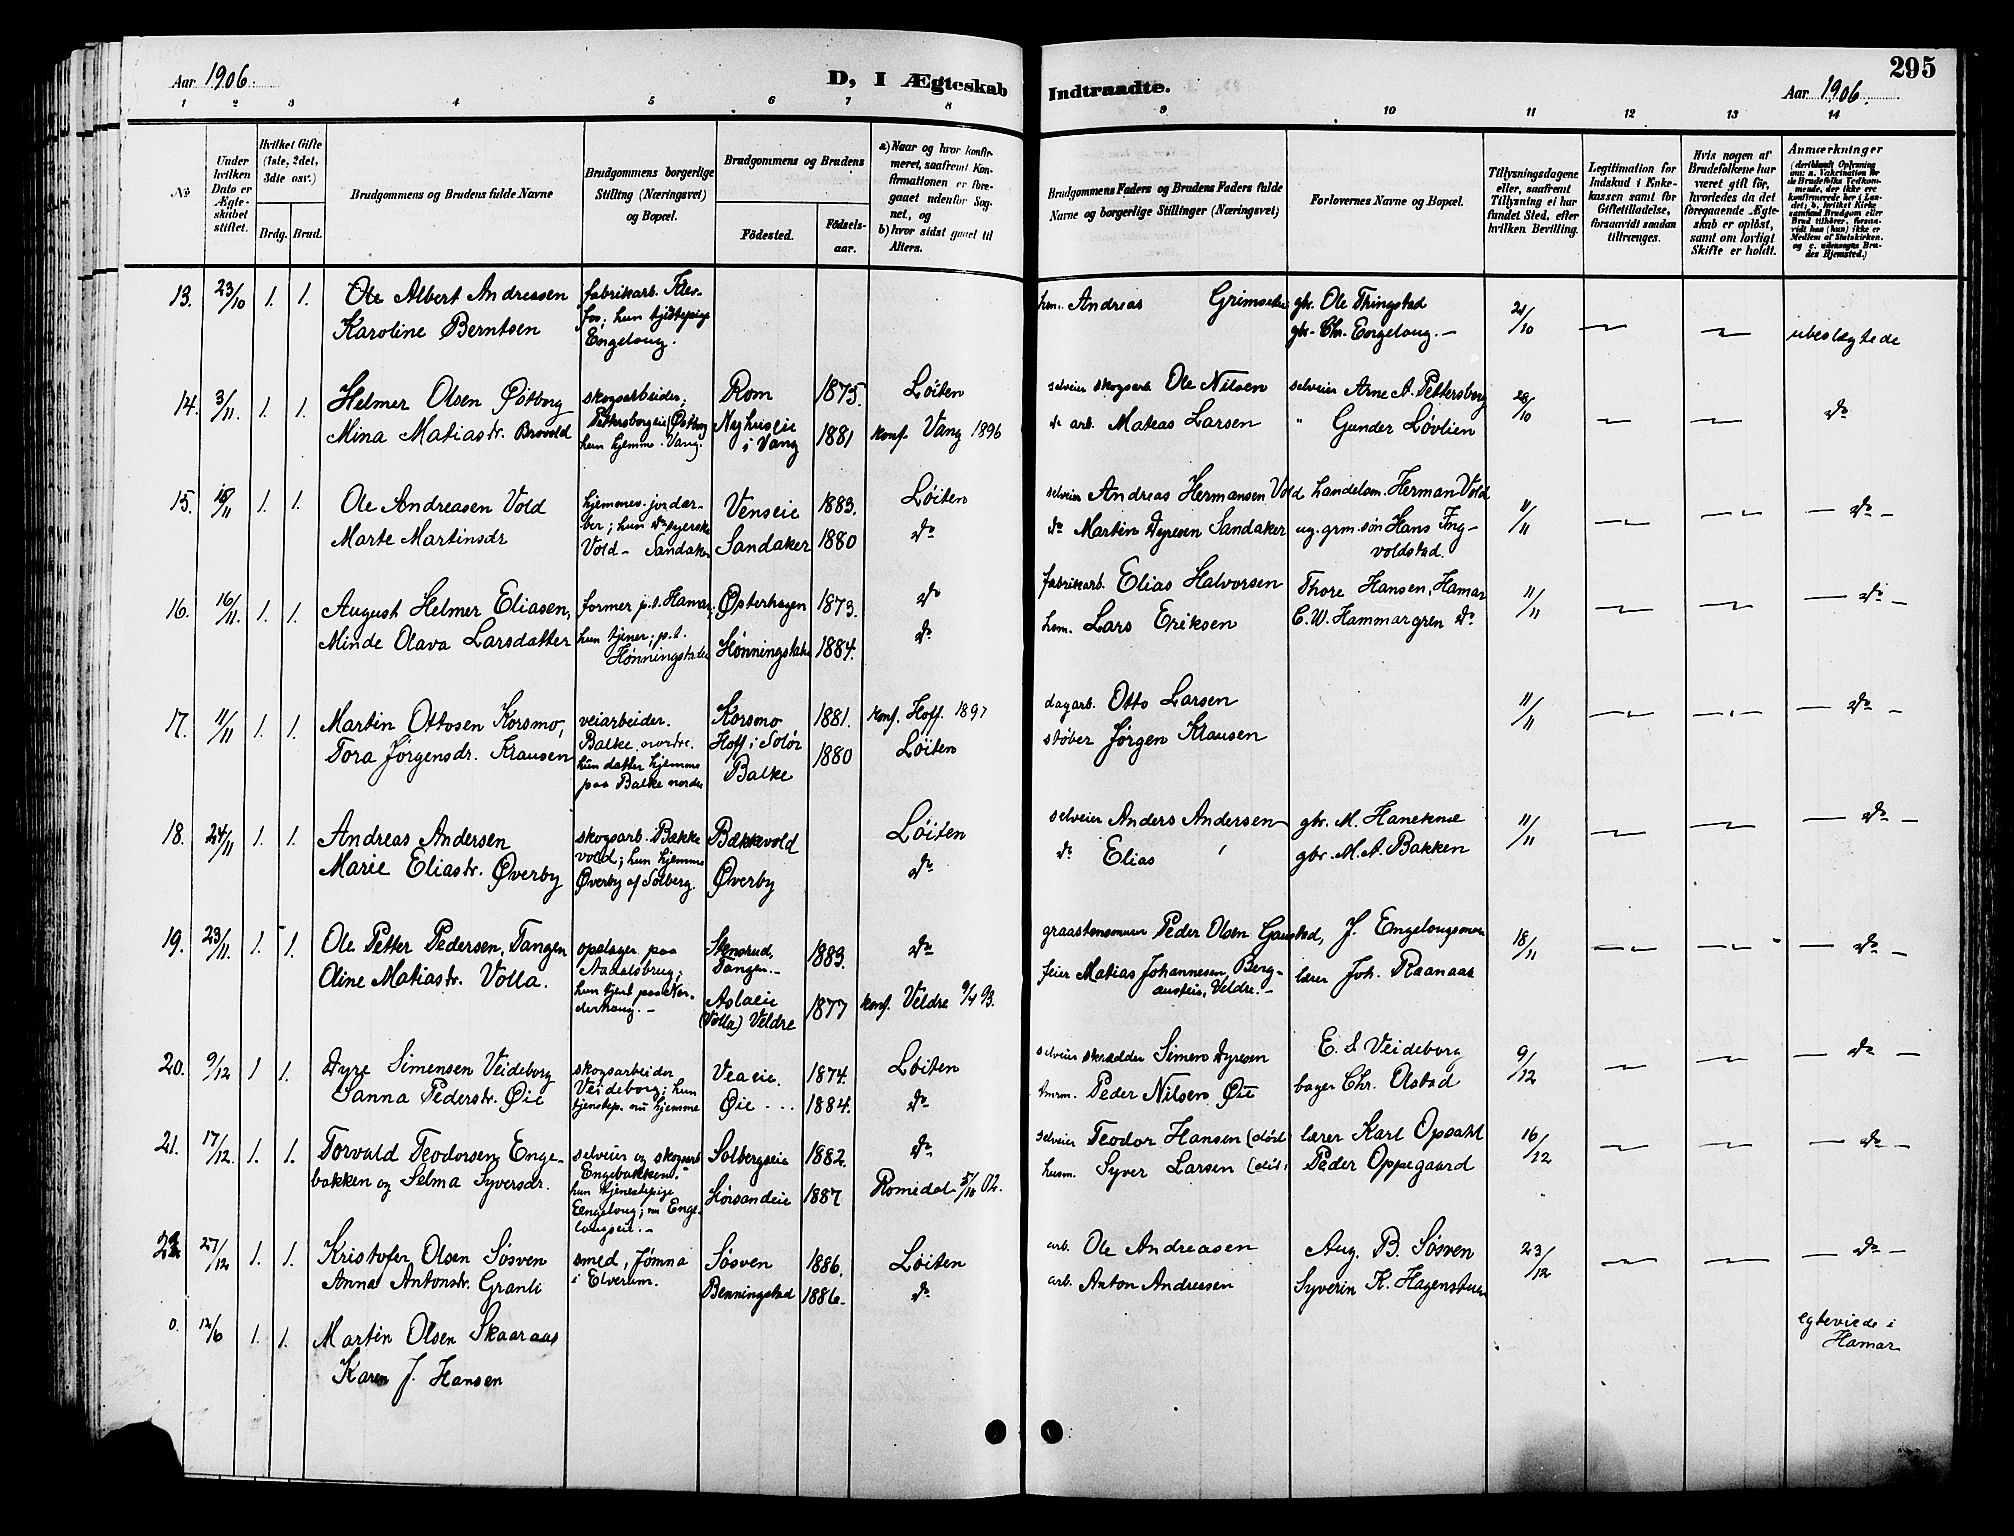 295
Aar 1906.
D, I Ægteskab Indtraadte.
Aar 1906.
1 2 3 4 5 6 7 8 9 10 11 12 13 14
No
Under hvilken Dato er Ægteskabet stiftet.
Hvilket Gifte (1ste, 2det, 3die osv.)
Brdg. Brud.
Brudgommens og Brudens fulde Navne
Brudgommens borgerlige Stilling (Næringsvei) og Bopæl.
Brudgommens og Brudens
Födested.
Födselsaar.
a) Naar og hvor konfirmeret, saafremt Konfirmationen er foregaaet udenfor Sognet, og
b) hvor sidst gaaet til Alters.
Brudgommens Faders og Brudens Faders fulde Navne og borgerlige Stillinger (Næringsvei)
Forlovernes Navne og Bopæl.
Tillysningsdagene eller, saafremt Tillysning ei har fundet Sted, efter hvilken Bevilling.
Legitimation for Indskud i Enkekassen samt for Giftetilladelse, forsaavidt saadan tiltrænges.
Hvis nogen af Brudefolkene har været gift för, hvorledes da det foregaaende Ægteskab er oplöst, samt om lovligt Skifte er holdt.
Anmærkninger
13. 23/10 1. 1. Ole Albert Andreasen
Karoline Berntsen
fabrikarb. Klevfos; hun
Engelaug.
hsm. Andreas
gbr. Ole Thingstad
gbr. Chr. Engelaug. —
21/10 — — ubeslægtede
14. 3/11. 1. 1. Helmer Olsen Østberg
Mina Matiastr. Brovold
skogsarbeider;
hun hjemme i Vang.
Rom 1875. Löiten
i Vang 1881 konf. Vang 1896
selveier skogsarb. Ole Nilsen
do arb. Mateas Larsen
selveier Arne A. Pettersberg
" Gunder Løvlien
28/10 — — do
15. 1. 1. Ole Andreasen Vold
Marte Martinsdr
Vold — Sandaker
Venseie 1883. Löiten
Sandaker 1880 do
selveier Andreas Hermansen Vold
do Martin Dyresen Sandaker
handelsm. Herman Vold
ug. grm. søn Hans Ingvoldstad.
11/11 — — — do —
16. 16/11. 1. 1. August Helmer Eliasen,
Minde Olava Larsdatter
former p.t. Hamar,
hun tjener; p.t.
Østerhagen 1873. do
1884. do
fabrikarb. Elias Halvorsen
hsm. Lars Eriksen
Thore Hansen, Hamar
C. W. Hammargren do
11/11 — — — do —
17. 11/11 1. 1. Martin Ottosen Korsmo,
Tora Jörgensdr. Klausen
veiarbeider.
Balke nordre.
hun datter hjemme
paa Balke nordre
Korsmo 1881. konf. Hoff. 1897
Hoff i Solör
Balke 1880 Löiten
dagarb. Otto Larsen
støber Jörgen Klausen
11/11 — — — do —
18. 24/11 1. 1. Andreas Andersen
Marie Eliastr. Øverby
skogsarb. i Bækkevold; hun hjemme
Øverby af Solberg.
Bækkevold Löiten
Øverby do
selveier Anders Andersen
do Elias
gbr. M. Haneknæ
gbr. M. A. Bakken
11/11 — — — do —
19. 23/11. 1. 1. Ole Petter Pedersen, Tangen
Oline Matiastr. Volla.
opslager paa
Aadalsbrug;
hun tjent paa Nordenhaug. —
Stensrud,
Tangen. 1883. do
Aslaeie
(Volla) Veldre 1877 konf. Veldre 9/4 93.
Peder Olsen Gaustad,
feier Matias Johannesen, Veldre. —
lærer Joh. Raanaas
18/11 — — — do —
20. 9/12 1 1. Dyre Simensen Veideborg
Sanna Pederstr. Øie
skogsarbeider
Veideborg; hun
tjenstep. nu hjemme
Veaeie. 1874. Löiten
Øie 1884. do
selveier skrædder Simen Dyresen
tmrm. Peder Nilsen Øie
E. S. Veideborg
bager Chr. Olstad
9/12 — — — do —
21. 17/12. 1. 1. Torvald Teodorsen Engebakken og Selma Syversdr.
selveier og skogsarb
hun tjenestepige
Engelaug; nu Engelaugseie. —
Solbergseie 1882. do
Sörsandeie 1887 Romedal 5/10 02.
selveier Teodor Hansen (död)
husm. Syver Larsen
lærer Karl Opsahl
Peder Oppegaard
16/12 — — — do —
22 27/12 1. 1. Kristofer Olsen Søsven
Anna Antonstr. Granli
smed, Jømna
i Elverum.
Søsven 1886. Löiten
Benningstad 1886. do
arb. Ole Andreasen
arb. Anton Andresen
Aug. B. Søsven
Syverin K.
23/12 — — — do —
0. 12/6 1. 1. Martin Olsen Skaaraas
Karen J. Hansen
egteviede i
Hamar